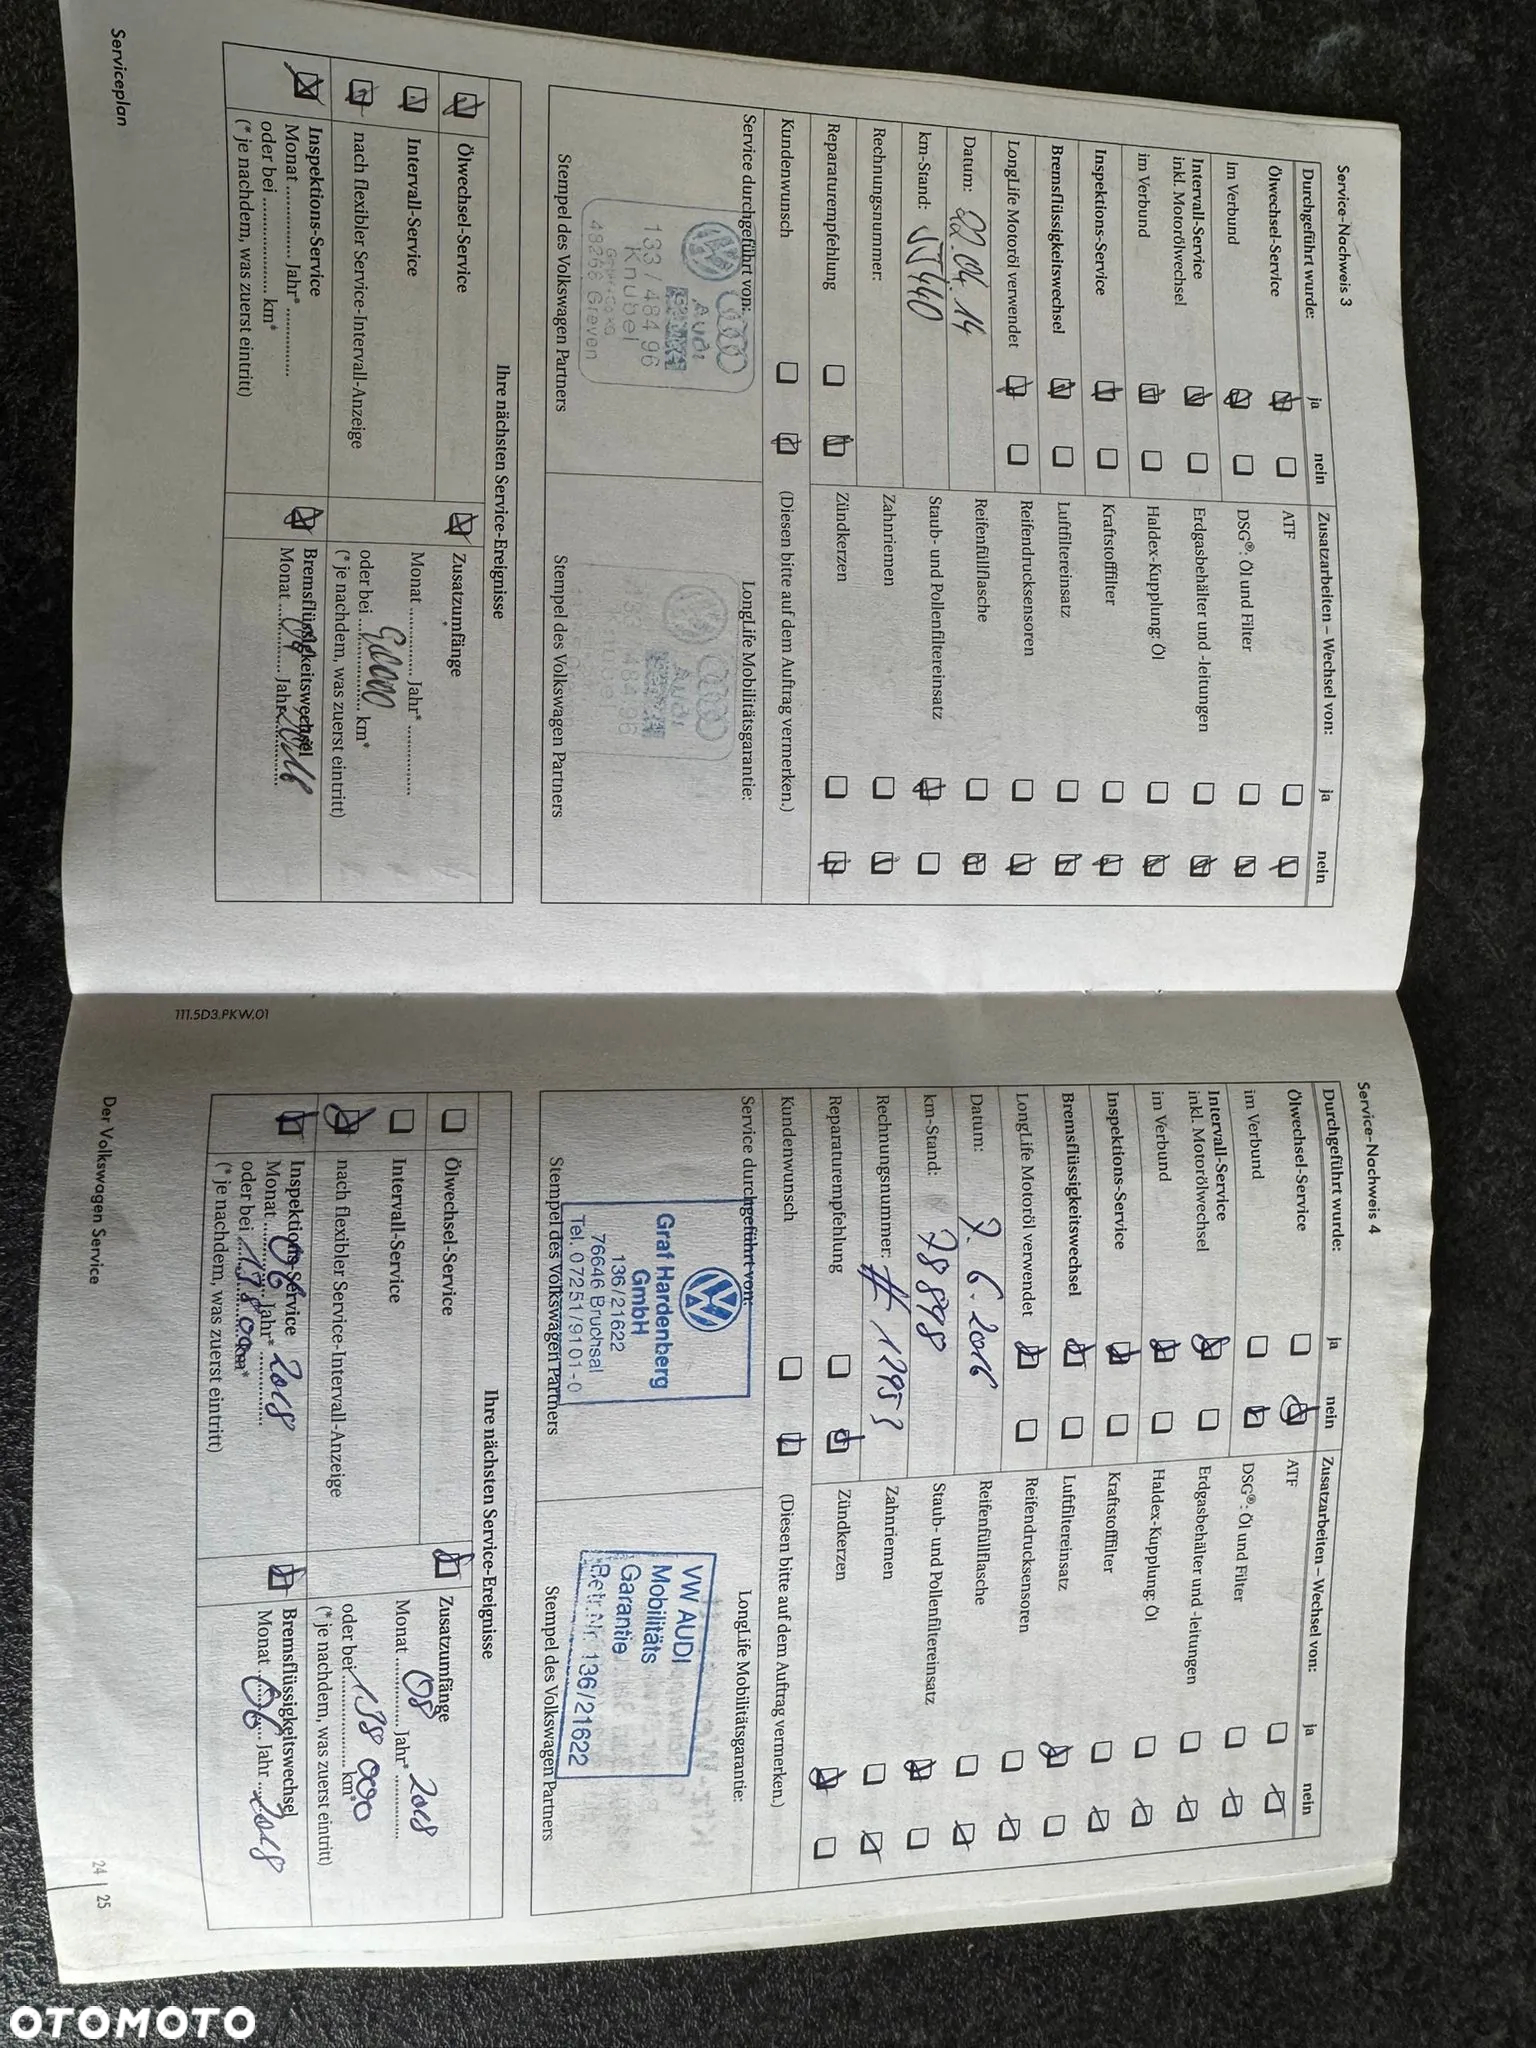 Service-Nachweis 3
Durchgeführt wurde: ja nein
Ölwechsel-Service
im Verbund
Intervall-Service
inkl. Motorölwechsel
im Verbund
Inspektions-Service
Bremsflüssigkeitswechsel
LongLife Motoröl verwendet
Datum: 22.04.14
km-Stand:
Rechnungsnummer:
Reparaturempfehlung
Kundenwunsch
Zusatzarbeiten – Wechsel von: ja nein
ATF
DSG®: Öl und Filter
Erdgasbehälter und -leitungen
Haldex-Kupplung: Öl
Kraftstofffilter
Luftfiltereinsatz
Reifendrucksensoren
Reifenfüllflasche
Staub- und Pollenfiltereinsatz
Zahnriemen
Zündkerzen
(Diesen bitte auf dem Auftrag vermerken.)
Service durchgeführt von:
Audi
133/48496
Knubel
48268 Greven
Stempel des Volkswagen Partners
LongLife Mobilitätsgarantie:
Audi
Stempel des Volkswagen Partners
Ihre nächsten Service-Ereignisse
Ölwechsel-Service
Intervall-Service
nach flexibler Service-Intervall-Anzeige
Inspektions-Service
Monat ............ Jahr* ............
oder bei ............ km*
(* je nachdem, was zuerst eintritt)
Zusatzumfänge
Monat ............ Jahr* ............
oder bei ............ km*
(* je nachdem, was zuerst eintritt)
Bremsflüssigkeitswechsel
Monat 04 Jahr 2016
Serviceplan
111.5D3.PKW.01
Service-Nachweis 4
Durchgeführt wurde: ja nein
Ölwechsel-Service
im Verbund
Intervall-Service
inkl. Motorölwechsel
im Verbund
Inspektions-Service
Bremsflüssigkeitswechsel
LongLife Motoröl verwendet
Datum: 7.6.2016
km-Stand: 78898
Rechnungsnummer:
Reparaturempfehlung
Kundenwunsch
Zusatzarbeiten – Wechsel von: ja nein
ATF
DSG®: Öl und Filter
Erdgasbehälter und -leitungen
Haldex-Kupplung: Öl
Kraftstofffilter
Luftfiltereinsatz
Reifendrucksensoren
Reifenfüllflasche
Staub- und Pollenfiltereinsatz
Zahnriemen
Zündkerzen
(Diesen bitte auf dem Auftrag vermerken.)
Service durchgeführt von:
Graf Hardenberg
GmbH
136/21622
76646 Bruchsal
Tel. 07251/9101-0
Stempel des Volkswagen Partners
LongLife Mobilitätsgarantie:
VW AUDI
Mobilitäts
Garantie
Betr.Nr. 136/21622
Stempel des Volkswagen Partners
Ihre nächsten Service-Ereignisse
Ölwechsel-Service
Intervall-Service
nach flexibler Service-Intervall-Anzeige
Inspektions-Service
Monat 06 Jahr* 2018
oder bei 138000 km*
(* je nachdem, was zuerst eintritt)
Zusatzumfänge
Monat 08 Jahr* 2018
oder bei 138 000 km*
(* je nachdem, was zuerst eintritt)
Bremsflüssigkeitswechsel
Monat 06 Jahr 2018
Der Volkswagen Service
24 | 25
OTOMOTO